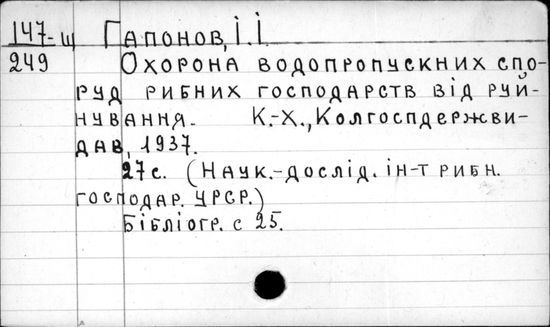 147-щ Гапонов, І. І.
249 Охорона водопропускних спо-
руд рибних господарств від руй-
нування. К.-Х., Колгоспдержви-
дав, 1937.
27 с. (Наук.-дослід. ін-т рибн.
господар. УРСР.)
Бібліогр. с 25.